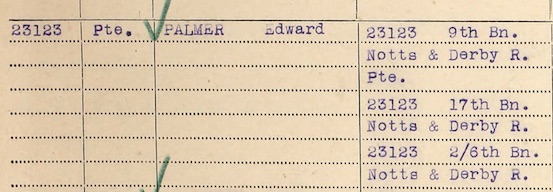 23123 Pte. PALMER Edward 23123 9th Bn.
Notts & Derby R.
Pte.
23123 17th Bn.
Notts & Derby R.
23123 2/6th Bn.
Notts & Derby R.